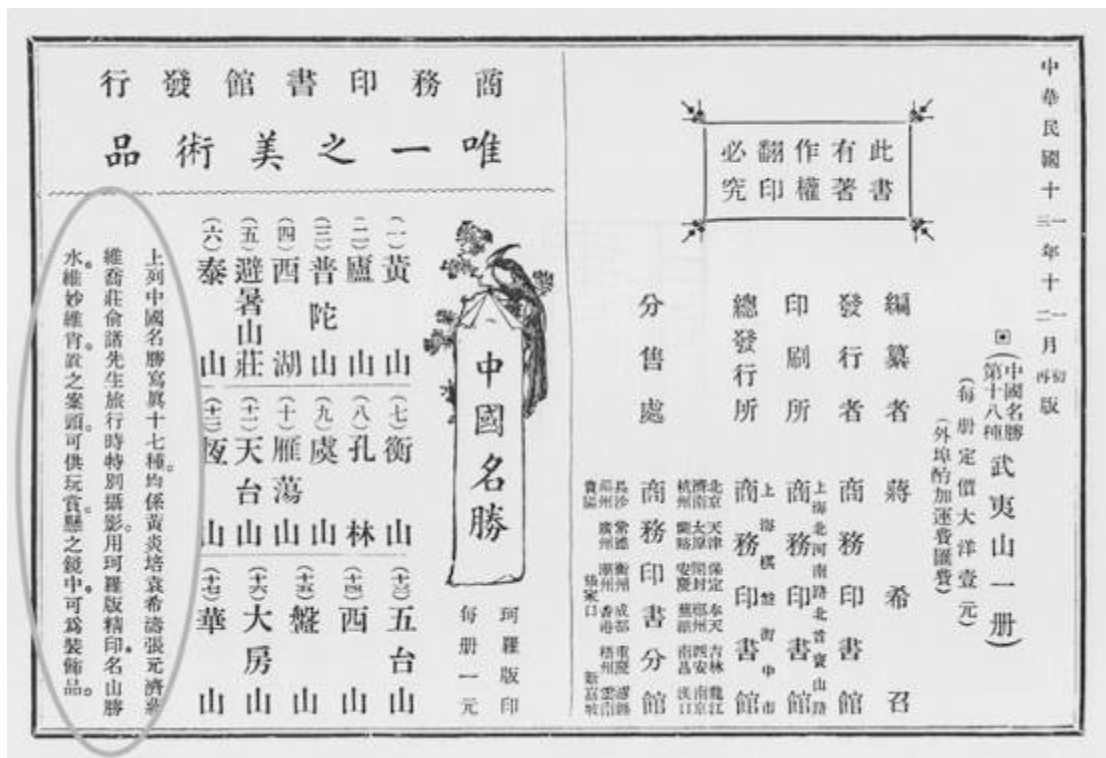 中華民國十一三年十一二月初再版
中國名勝
第十八種
武夷山一册
(每册定價大洋壹元)
(外埠酌加運費匯費)
編纂者 蔣希召
發行者 商務印書館
上海北河南路北首寶山路
印刷所 商務印書館
上海棋盤街中市
總發行所 商務印書館
北京 天津 保定 奉天 吉林 龍江
濟南 太原 開封 鄭州 西安 南京
杭州 蘭谿 安慶 蕪湖 南昌 漢口
分售處 商務印書分館
長沙 常德 衡州 成都 重慶 瀘縣
福州 廣州 潮州 香港 梧州 雲南
貴陽 張家口 新嘉坡
此書
有著
作權
翻印
必究
商務印書館發行
唯一之美術品
中國名勝
珂羅版印
每册一元
(一)黃山
(二)廬山
(三)普陀山
(四)西湖
(五)避暑山莊
(六)泰山
(七)衡山
(八)孔林
(九)虞山
(十)雁蕩山
(十一)天台山
(十二)恆山
(十三)五台山
(十四)西山
(十五)盤山
(十六)大房山
(十七)華山
上列中國名勝寫眞十七種。均係黃炎培袁希濤張元濟蔣
維喬莊俞諸先生旅行時特別攝影。用珂羅版精印。名山勝
水。維妙維肖。置之案頭。可供玩賞。懸之鏡中。可爲裝飾品。